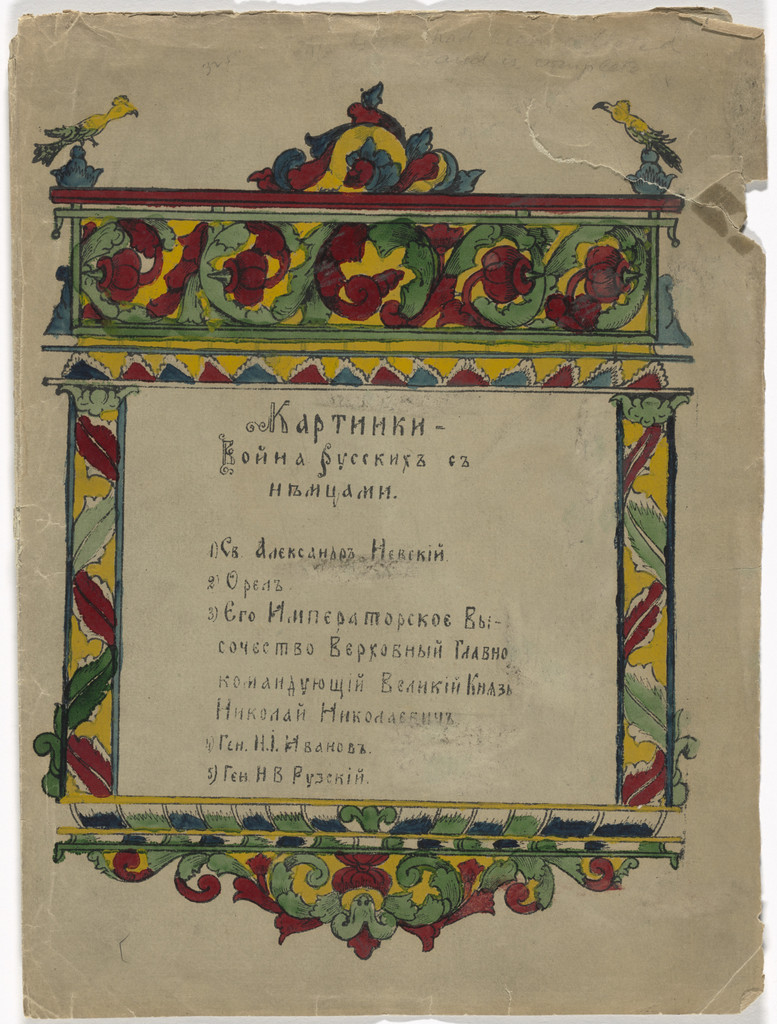 Картинки -
Война Русскихъ съ
нѣмцами.
1) Св. Александръ Невскій.
2) Орелъ.
3) Его Императорское Вы-
сочество Верховный Главно
командующій Великій Князь
Николай Николаевичъ.
4) Ген. Н.І. Ивановъ.
5) Ген. Н В Рузскій.